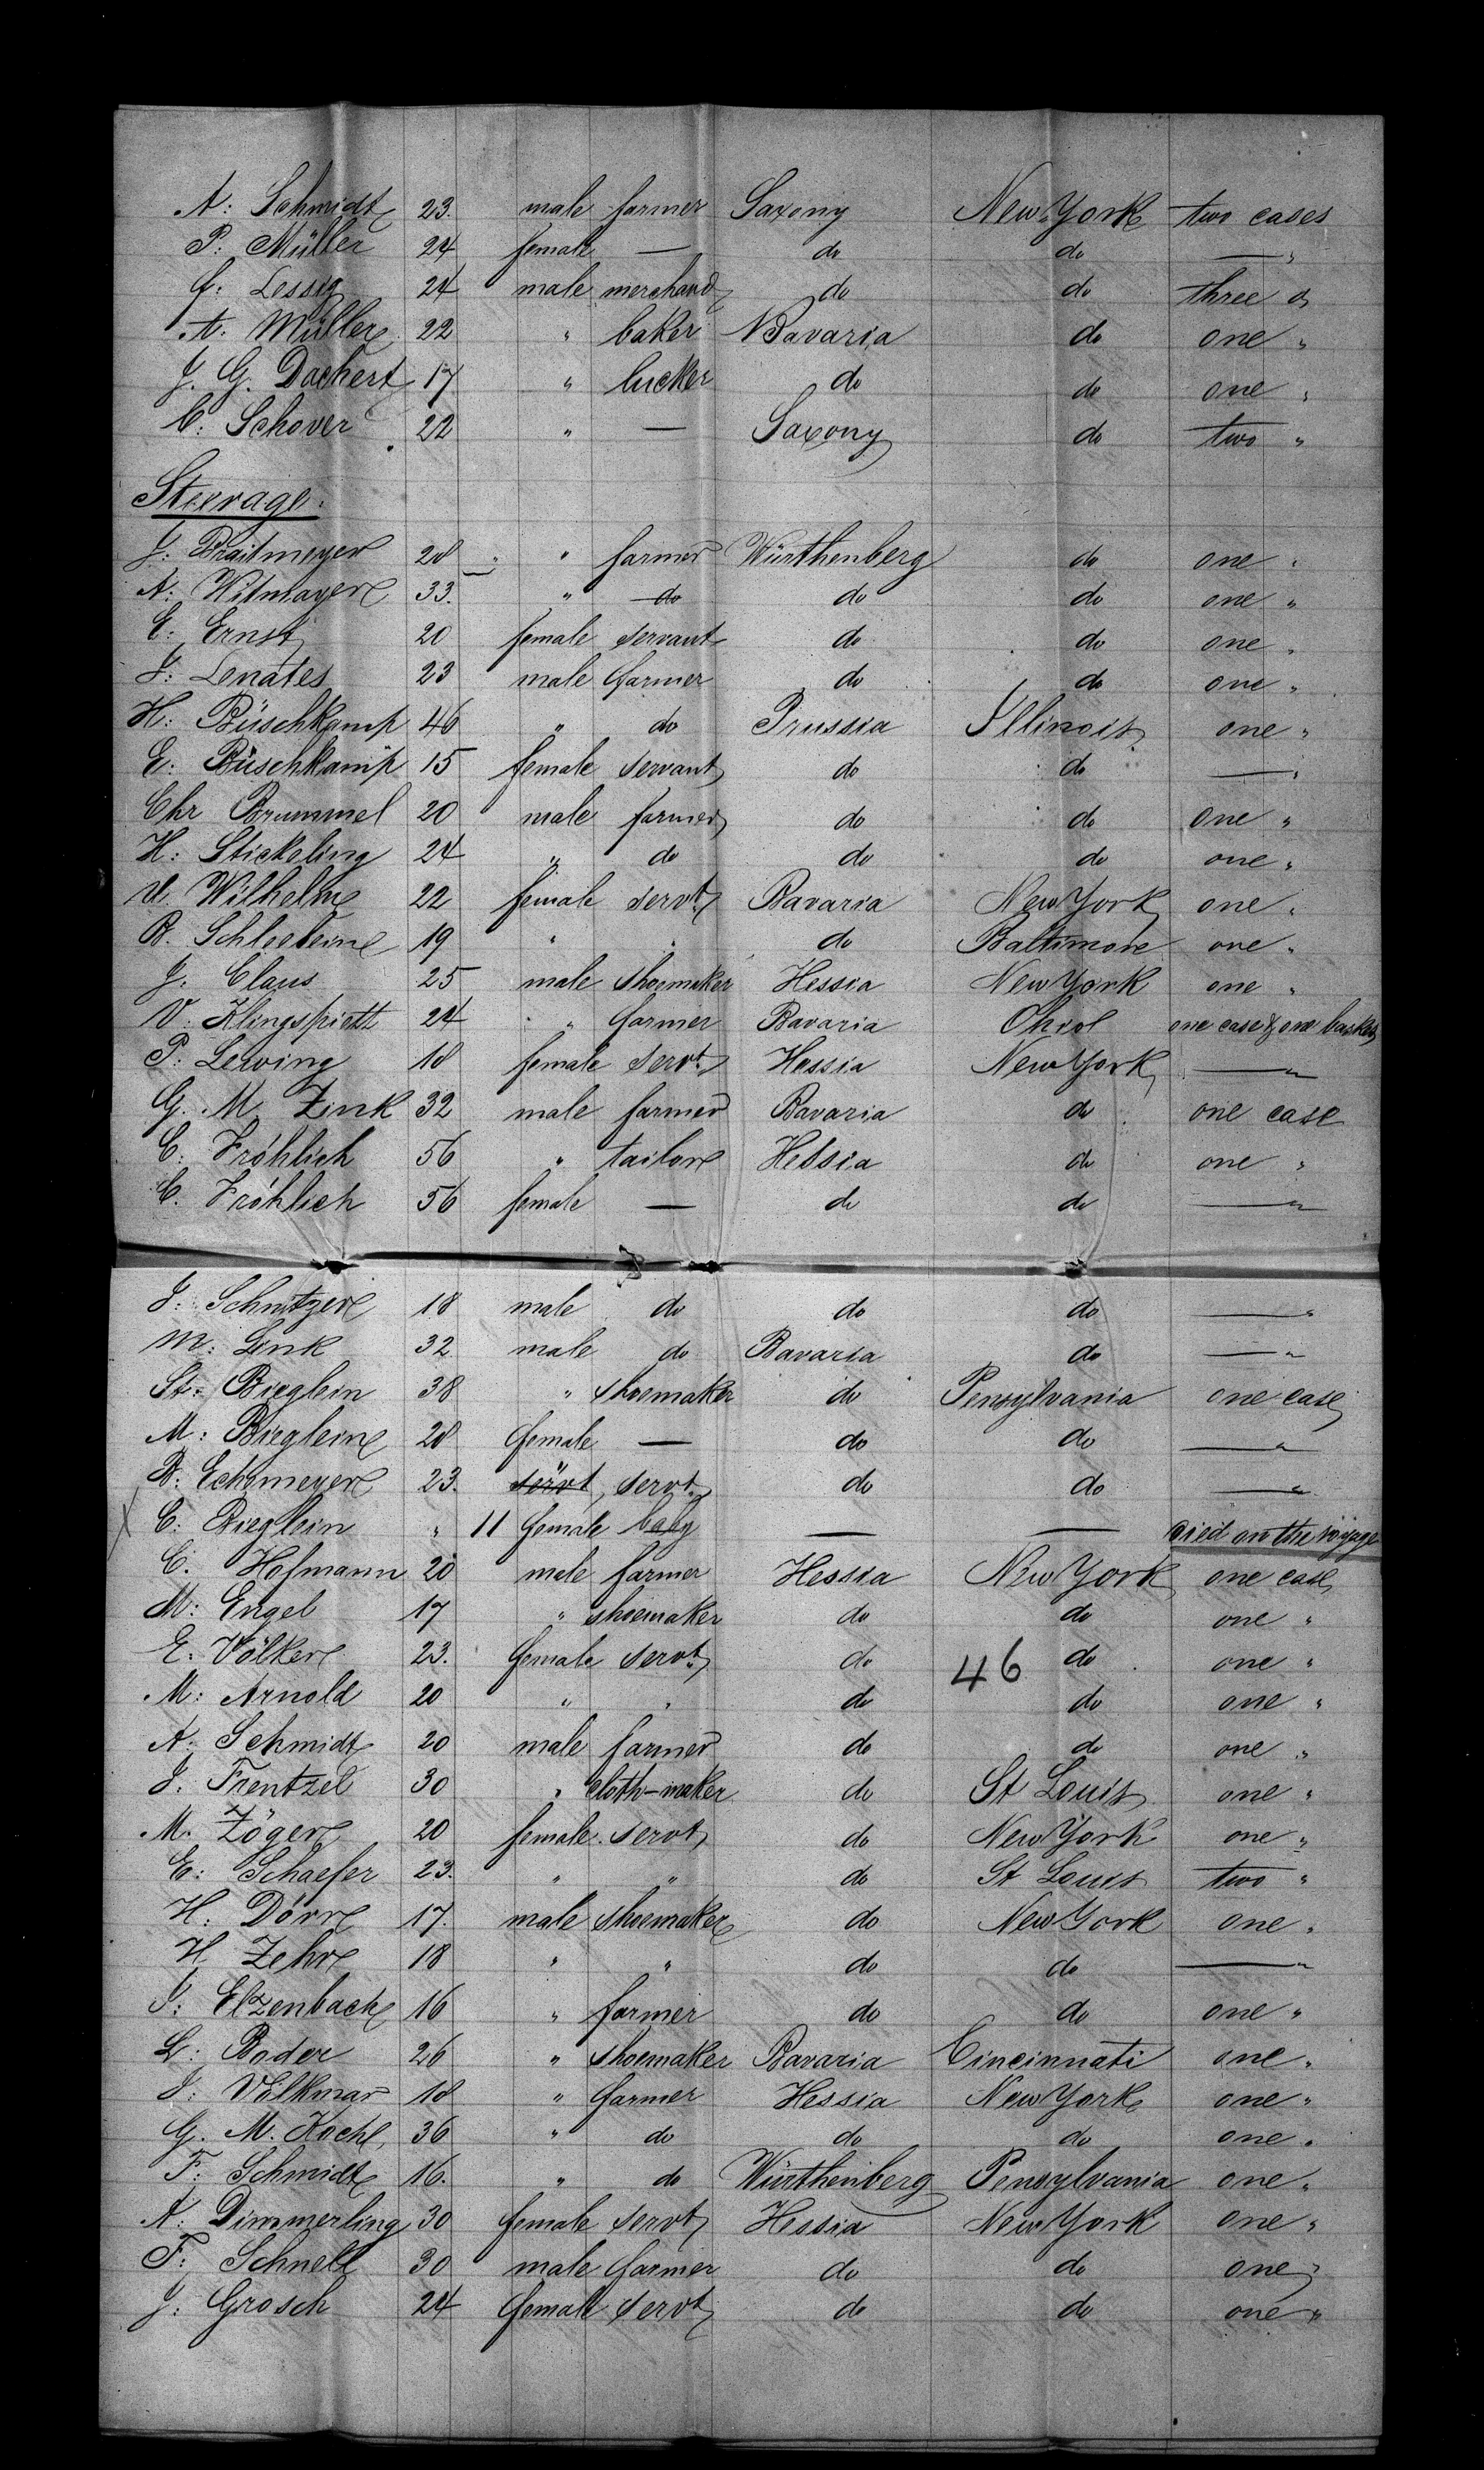 A: Schmidt 23. male farmer Saxony New York two cases
P: Müller 24 female — do do — "
Lessig 24 male merchand do do three "
A. Müller 22 " baker Bavaria do one "
J. G. Dachert 17 " do do one "
C: Schover 22 " — Saxony do two "
Steerage.
J: Braitmeyer 28 " " farmer Würthenberg do one "
A: Witmayer 33. " do do do one "
E: Ernst 20 female servant do do one "
J: Lenates 23 male farmer do do one "
H: Büschkamp 46 " do Prussia Illinois one "
E: Büschkamp 15 female servant do do — "
Chr Brummel 20 male farmer do do one "
H: Stickeling 24 " do do do one "
Wilhelm 22 female servt. Bavaria New York one "
B. Schleelein 19 " " do Baltimore one "
J. Claus 25 male shoemaker Hessia New York one "
V. Klingspiett 24 " farmer Bavaria Ohio one case & one basket
P: Lewing 18 female servt. Hessia New York — "
G. M. Zink 32 male farmer Bavaria do one case
C: Fröhlich 56 " tailor Hessia do one "
C. Fröhlich 56 female — do do — "
J: Schnitzer 18 male do do do — "
M: Link 32 male do Bavaria do — "
St: Bieglein 38 " shoemaker do Pensylvania one case
M: Bieglein 28 female — do do — "
B: Echmeyer 23. servt, servt. do do — "
X C: Bieglein " 11 female baby — — died on the voyage
C. Hofmann 20 male farmer Hessia New York one case
M: Engel 17 " shoemaker do do one "
E. Völker 23. female servt. do 46 do one "
M: Arnold 20 " " do do one "
A. Schmidt 20 male farmer do do one "
J. Frentzel 30 " cloth-maker do St Louis one "
M. Zöger 20 female servt do New York one "
E: Schaefer 23. " " do St Louis two "
H: Dörr 17. male shoemaker do New York one "
H. Zehr 18 " " do do — "
J: Elzenback 16 " farmer do do one "
L: Boder 26 " shoemaker Bavaria Cincinnati one "
J: Völkmar 18 " farmer Hessia New York one "
G. M. Koch 36 " do do do one "
F: Schmidt 16. " do Würthenberg Pensylvania one "
A: Dimmerling 30 female servt Hessia New York one "
F: Schnell 30 male farmer do do one "
J: Grosch 24 female servt do do one "